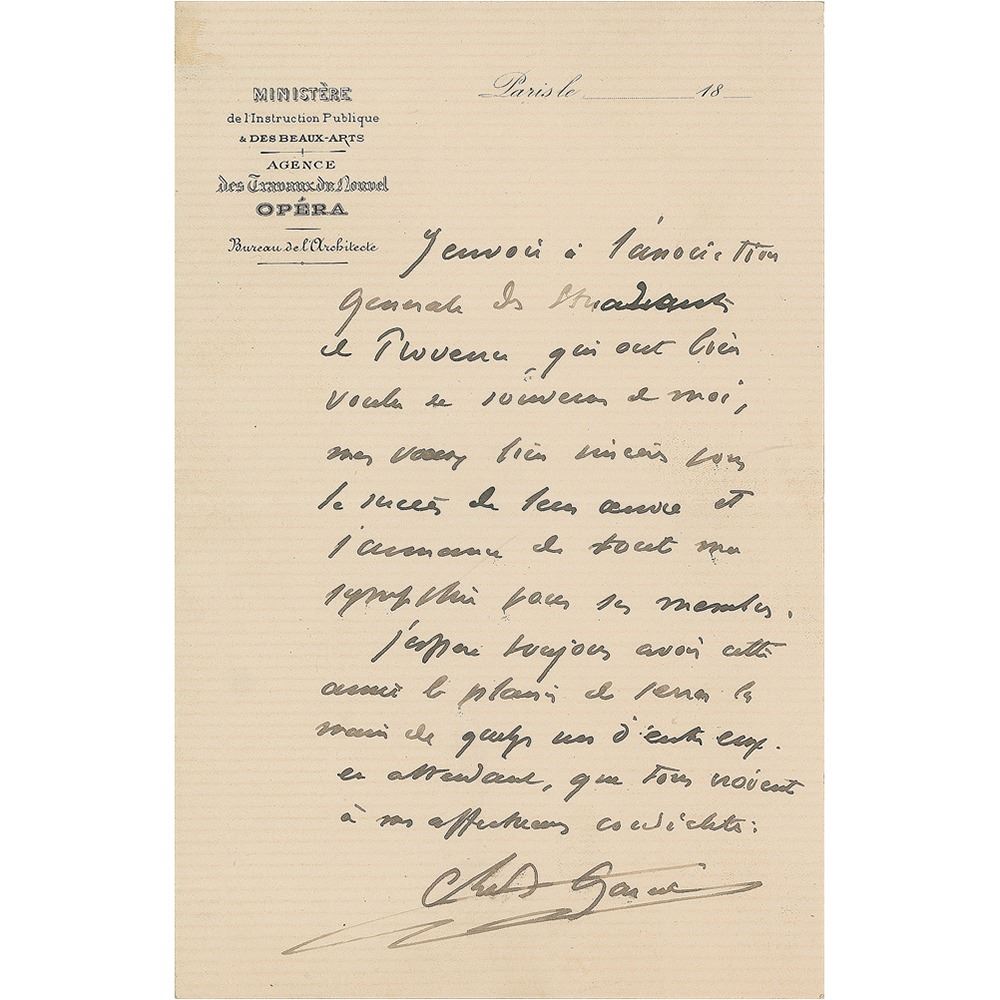 MINISTÈRE
de l'Instruction Publique
& DES BEAUX-ARTS
AGENCE
des Travaux du Nouvel
OPÉRA
Bureau de l'Architecte
Paris le 18
J'envoie à l'association
Generale des Etudiants
de Provence qui ont bien
voulu se souvenir de moi,
mes voeux bien sincères pour
le succès de leur œuvre et
l'assurance de toute ma
sympathie pour ses membres.
j'espère toujours avoir cette
année le plaisir de serrer la
main de quelqu'uns d'entre eux.
en attendant, que tous croient
à mes affectueuses cordialités.
Charles Garnier